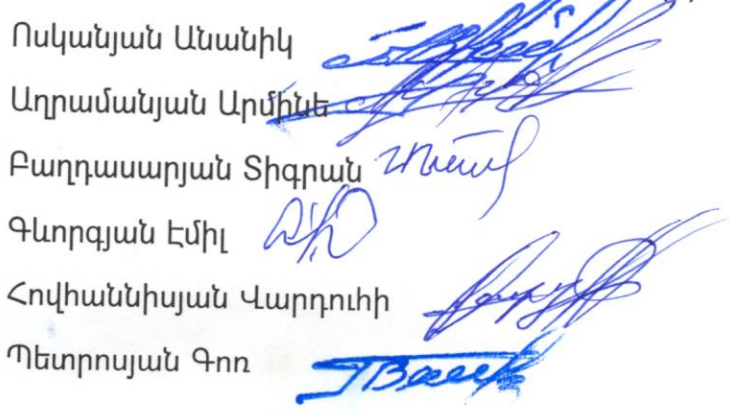 Ոսկանյան Անանիկ
Աղրամանյան Արմինե
Բաղդասարյան Տիգրան
Գևորգյան Էմիլ
Հովհաննիսյան Վարդուհի
Պետրոսյան Գոռ